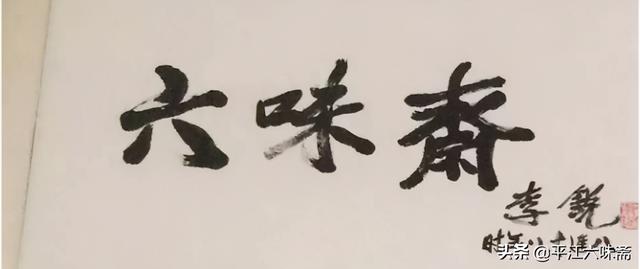 六味斋
李銳
头条 @平江六味斋